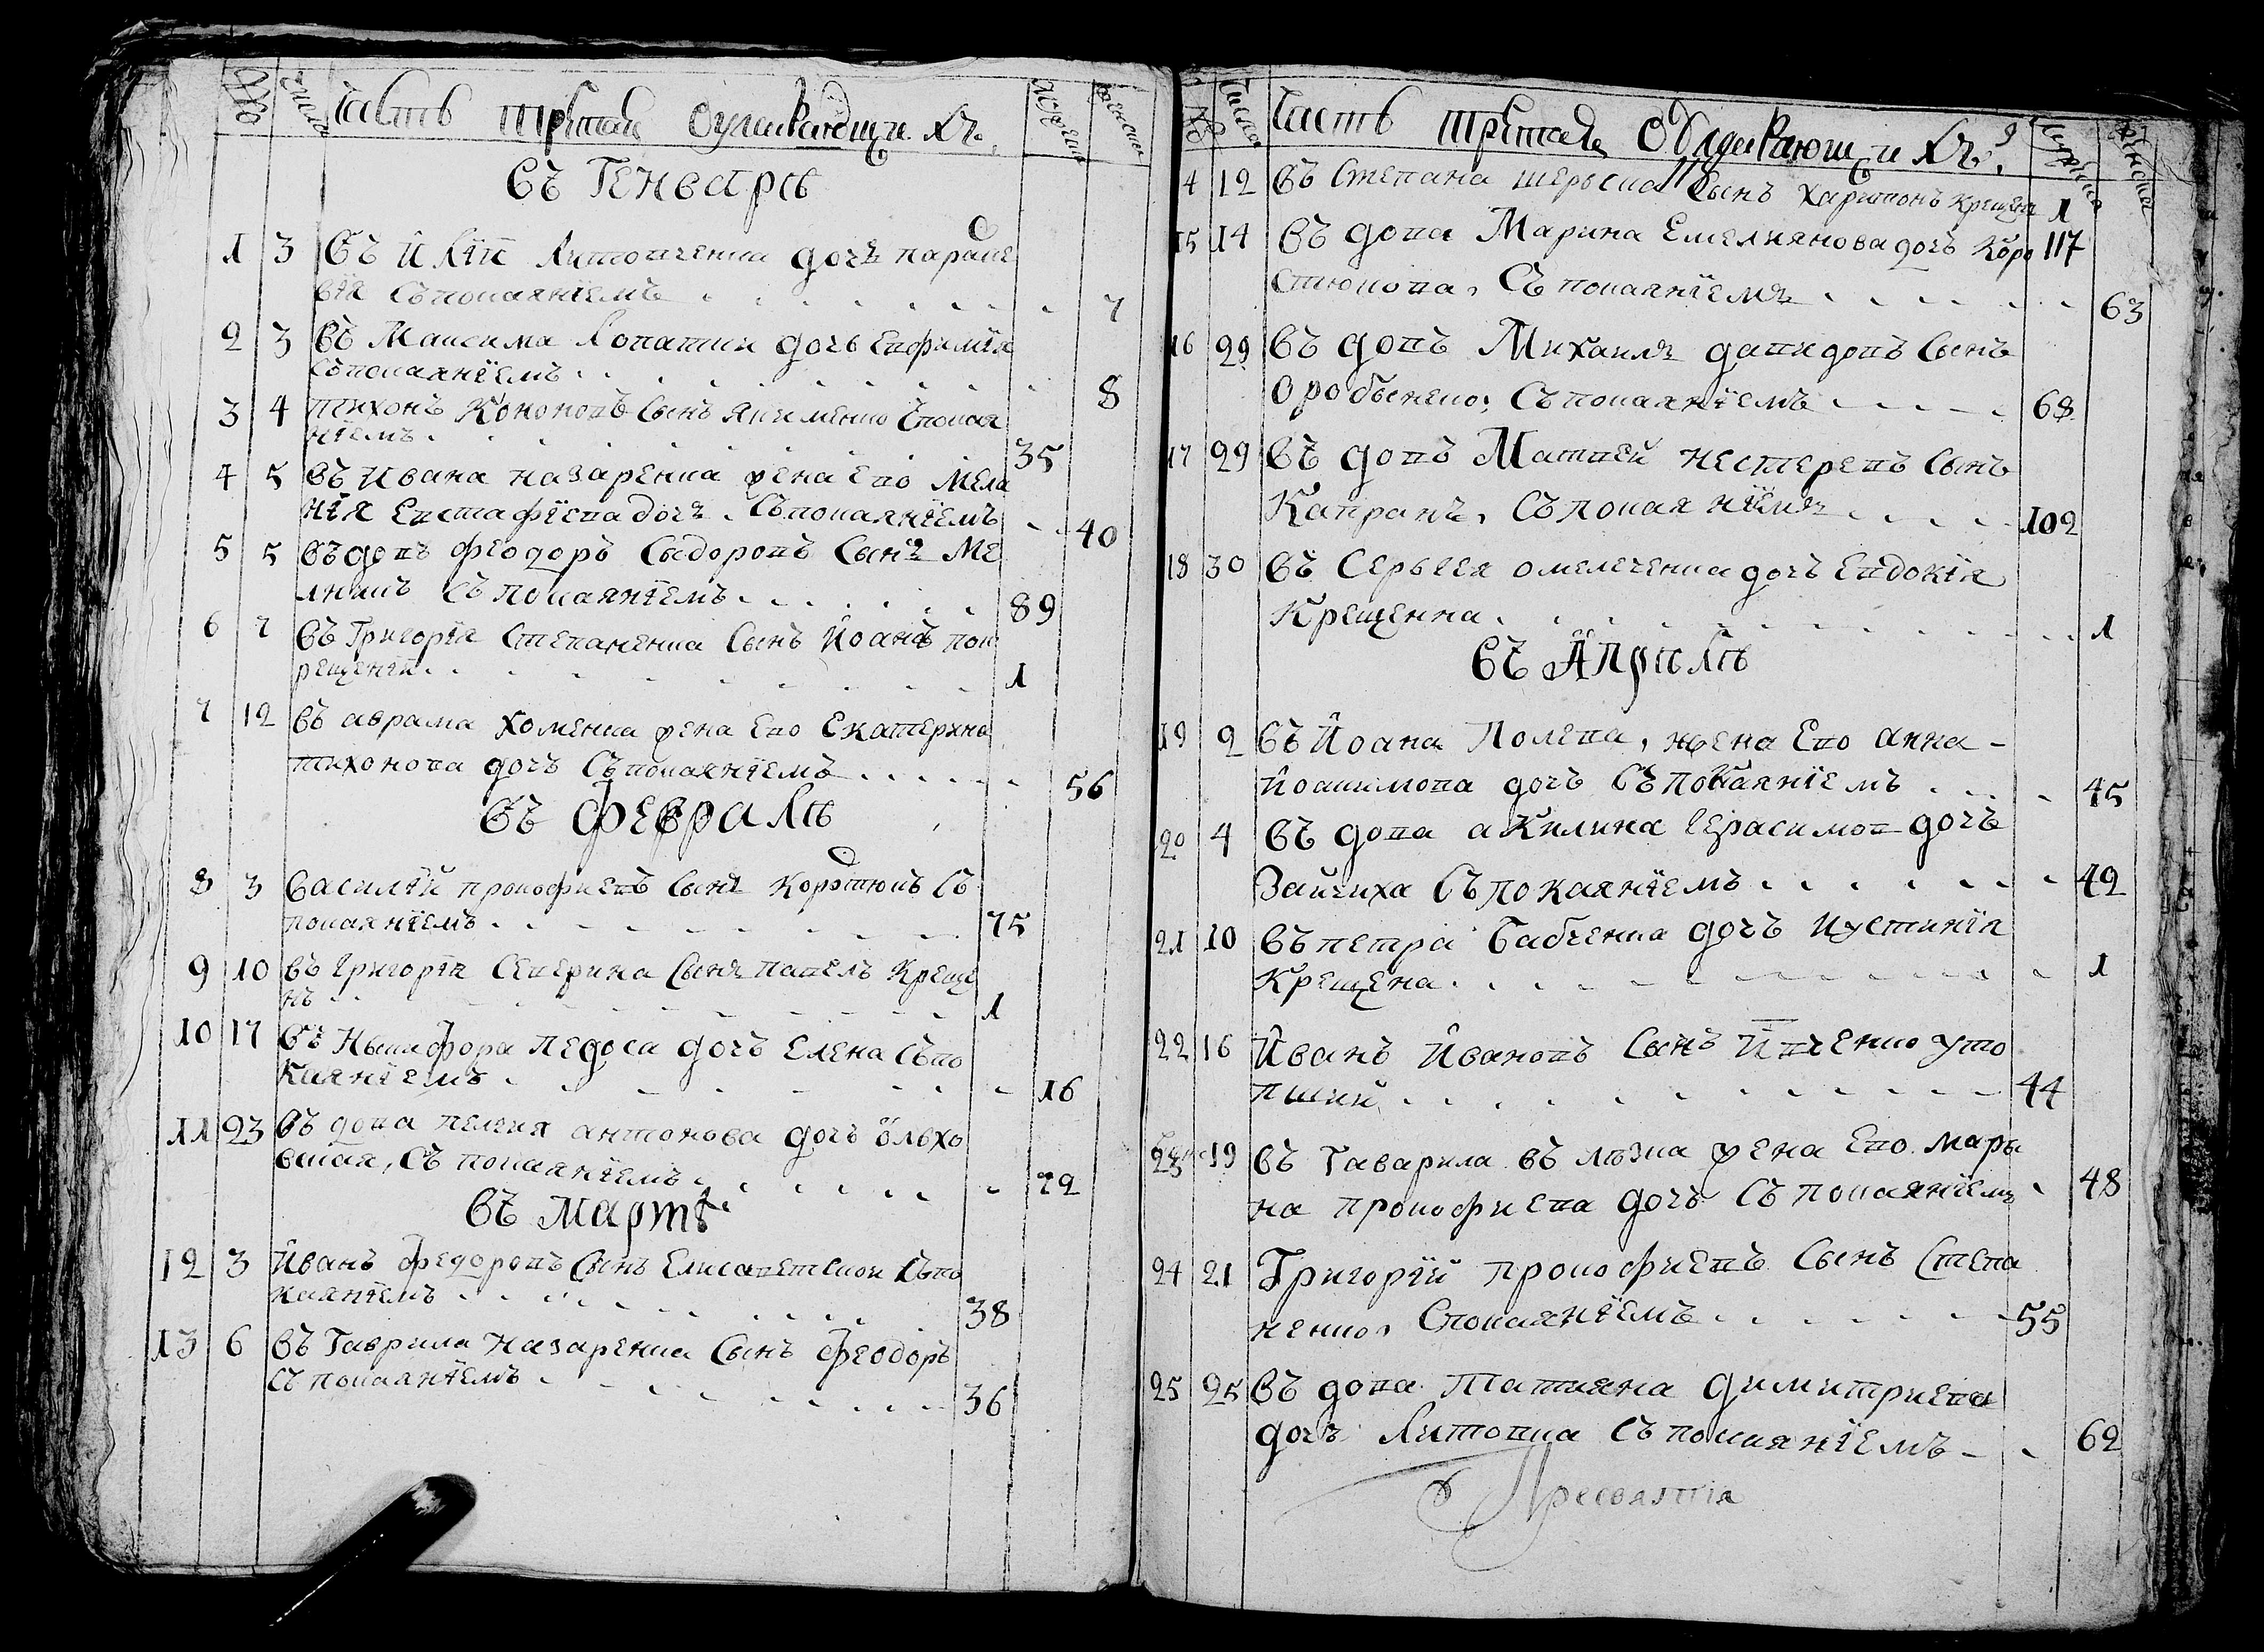 № Числа Часть третая О умирающихъ. Мужеска женска
Въ Генварѣ
1 3 Въ Илїи Литовченка дочъ параске
вїя Съпокаянїемъ 7
2 3 Въ Максима Лопатки дочъ Евфимїя
Съпокаянїемъ 8
3 4 тихонъ Кононовъ Сынъ якименко Спокая
нїемъ 35
4 5 Въ Ивана назаренка жена Его Мела
нїя Евстафїева дочъ. Съпокаянїемъ 40
5 5 Въдовъ феодоръ Сыдоровъ Сынъ Ме
лникъ Съпокаянїемъ 89
6 7 Въ Григорїя Степаненка Сынъ Иоанъ пок
рещенїи 1
7 12 Въ аврама Хоменка жена Его Екатерина
тихонова дочъ Съпокаянїемъ 56
Въ февралѣ
8 3 Василїй прокофиевъ Сынъ Коротюкъ Съ
покаянїемъ 75
9 10 Въ Григорїя Северина Сынъ павелъ Креще
нъ 1
10 17 Въ Никифора педоса дочъ Елена Съпо
каянїемъ 16
11 23 Въ дова пелгия антонова дочъ ольхо
вская, Съ покаянїемъ 72
Въ Мартѣ
12 3 Иванъ федоровъ Сынъ Елисаветскои Съпо
каянїемъ 38
13 6 Въ Гаврила назаренка Сынъ феодоръ
Съ покаянїемъ 36
№ Числа Часть третая О умирающихъ. Мужеска женска
4 12 Въ Степана Сынъ харитонъ Крещенъ 1
15 14 Въ дова Марина Емелиянова дочъ Коро 117
стюкова, Съпокаянїемъ 63
16 29 Въ довъ Михаилъ давидовъ Сынъ
Оробченко, Съпокаянїемъ 68
17 29 Въ довъ Матвей нестеревъ Сынъ
Капранъ, Съпокаянїемъ 102
18 30 Въ Сергея омелченка дочъ Евдокїя
Крещенна 1
Въ Априлѣ
19 2 Въ Иоана Полева, жена Его анна
Иоакимова дочъ Съпокаянїемъ 45
20 4 Въ дова акилина Герасимов дочъ
Зайчиха Съпокаянїемъ 42
21 10 Въпетра Бабченка дочъ Иустинїя
Крещена 1
22 16 Иванъ Ивановъ Сынъ Ивченко уто
пший 44
23 19 Въ Гаварила жена Его. Мари
на прокофиева дочъ Съ покаянїемъ 48
24 21 Григорїй прокофиевъ Сынъ Степа
ненко, Спокаянїемъ 55
25 25 Въ дова татияна димитриева
дочъ Литовка Съпокаянїемъ 62